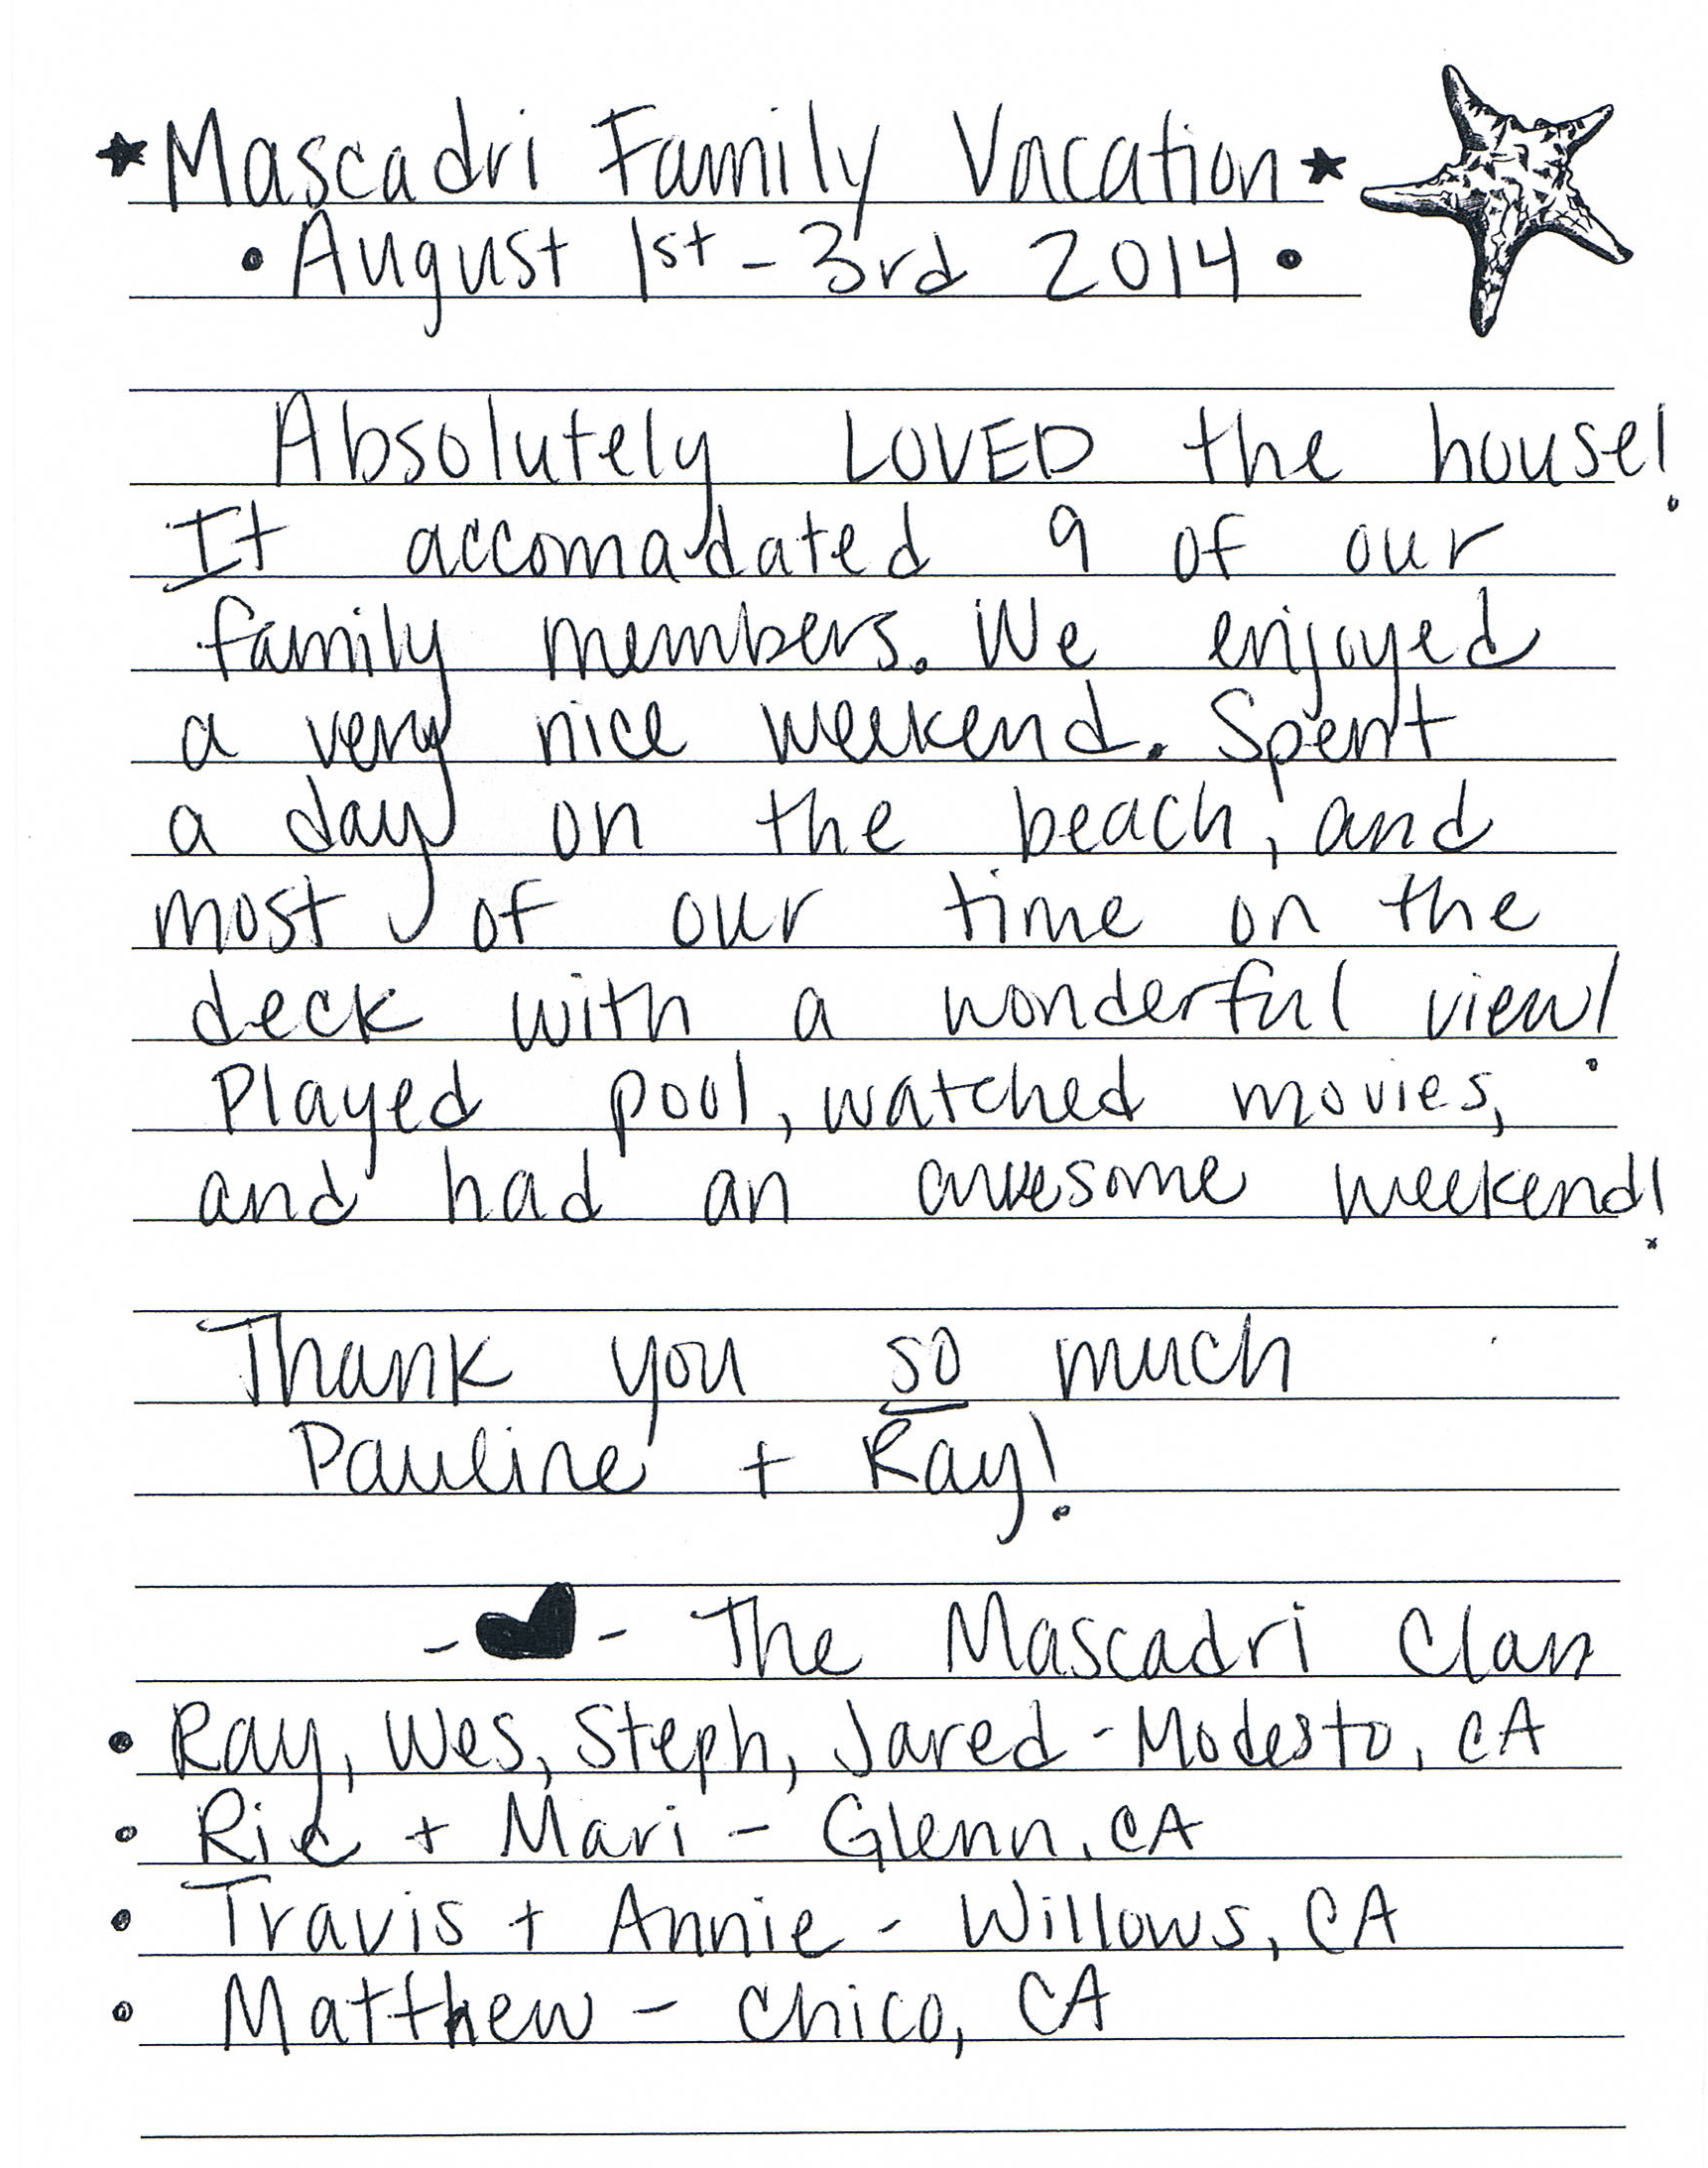 ★Mascadri Family Vacation★
•August 1st - 3rd 2014•
Absolutely LOVED the house!
It accomadated 9 of our
family members. We enjoyed
a very nice weekend. Spent
a day on the beach, and
most of our time on the
deck with a wonderful view!
Played pool, watched movies,
and had an awesome weekend!
Thank you so much
Pauline + Ray!
-♥- The Mascadri Clan
• Ray, Wes, Steph, Jared - Modesto, CA
• Ric + Mari - Glenn, CA
• Travis + Annie - Willows, CA
• Matthew - Chico, CA